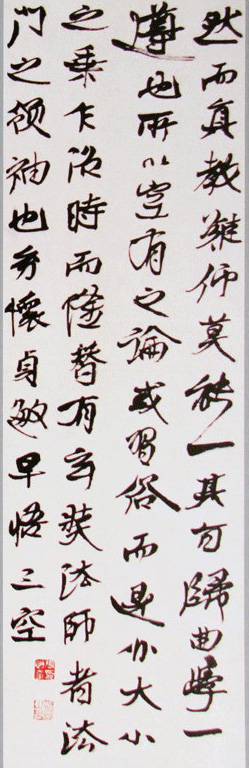 然而真教難仰莫能一其旨歸曲學一
遵也所以空有之論或習俗而是非大小
之乘乍沿時而隆替有玄奘法師者法
門之領袖也幼懷貞敏早悟三空